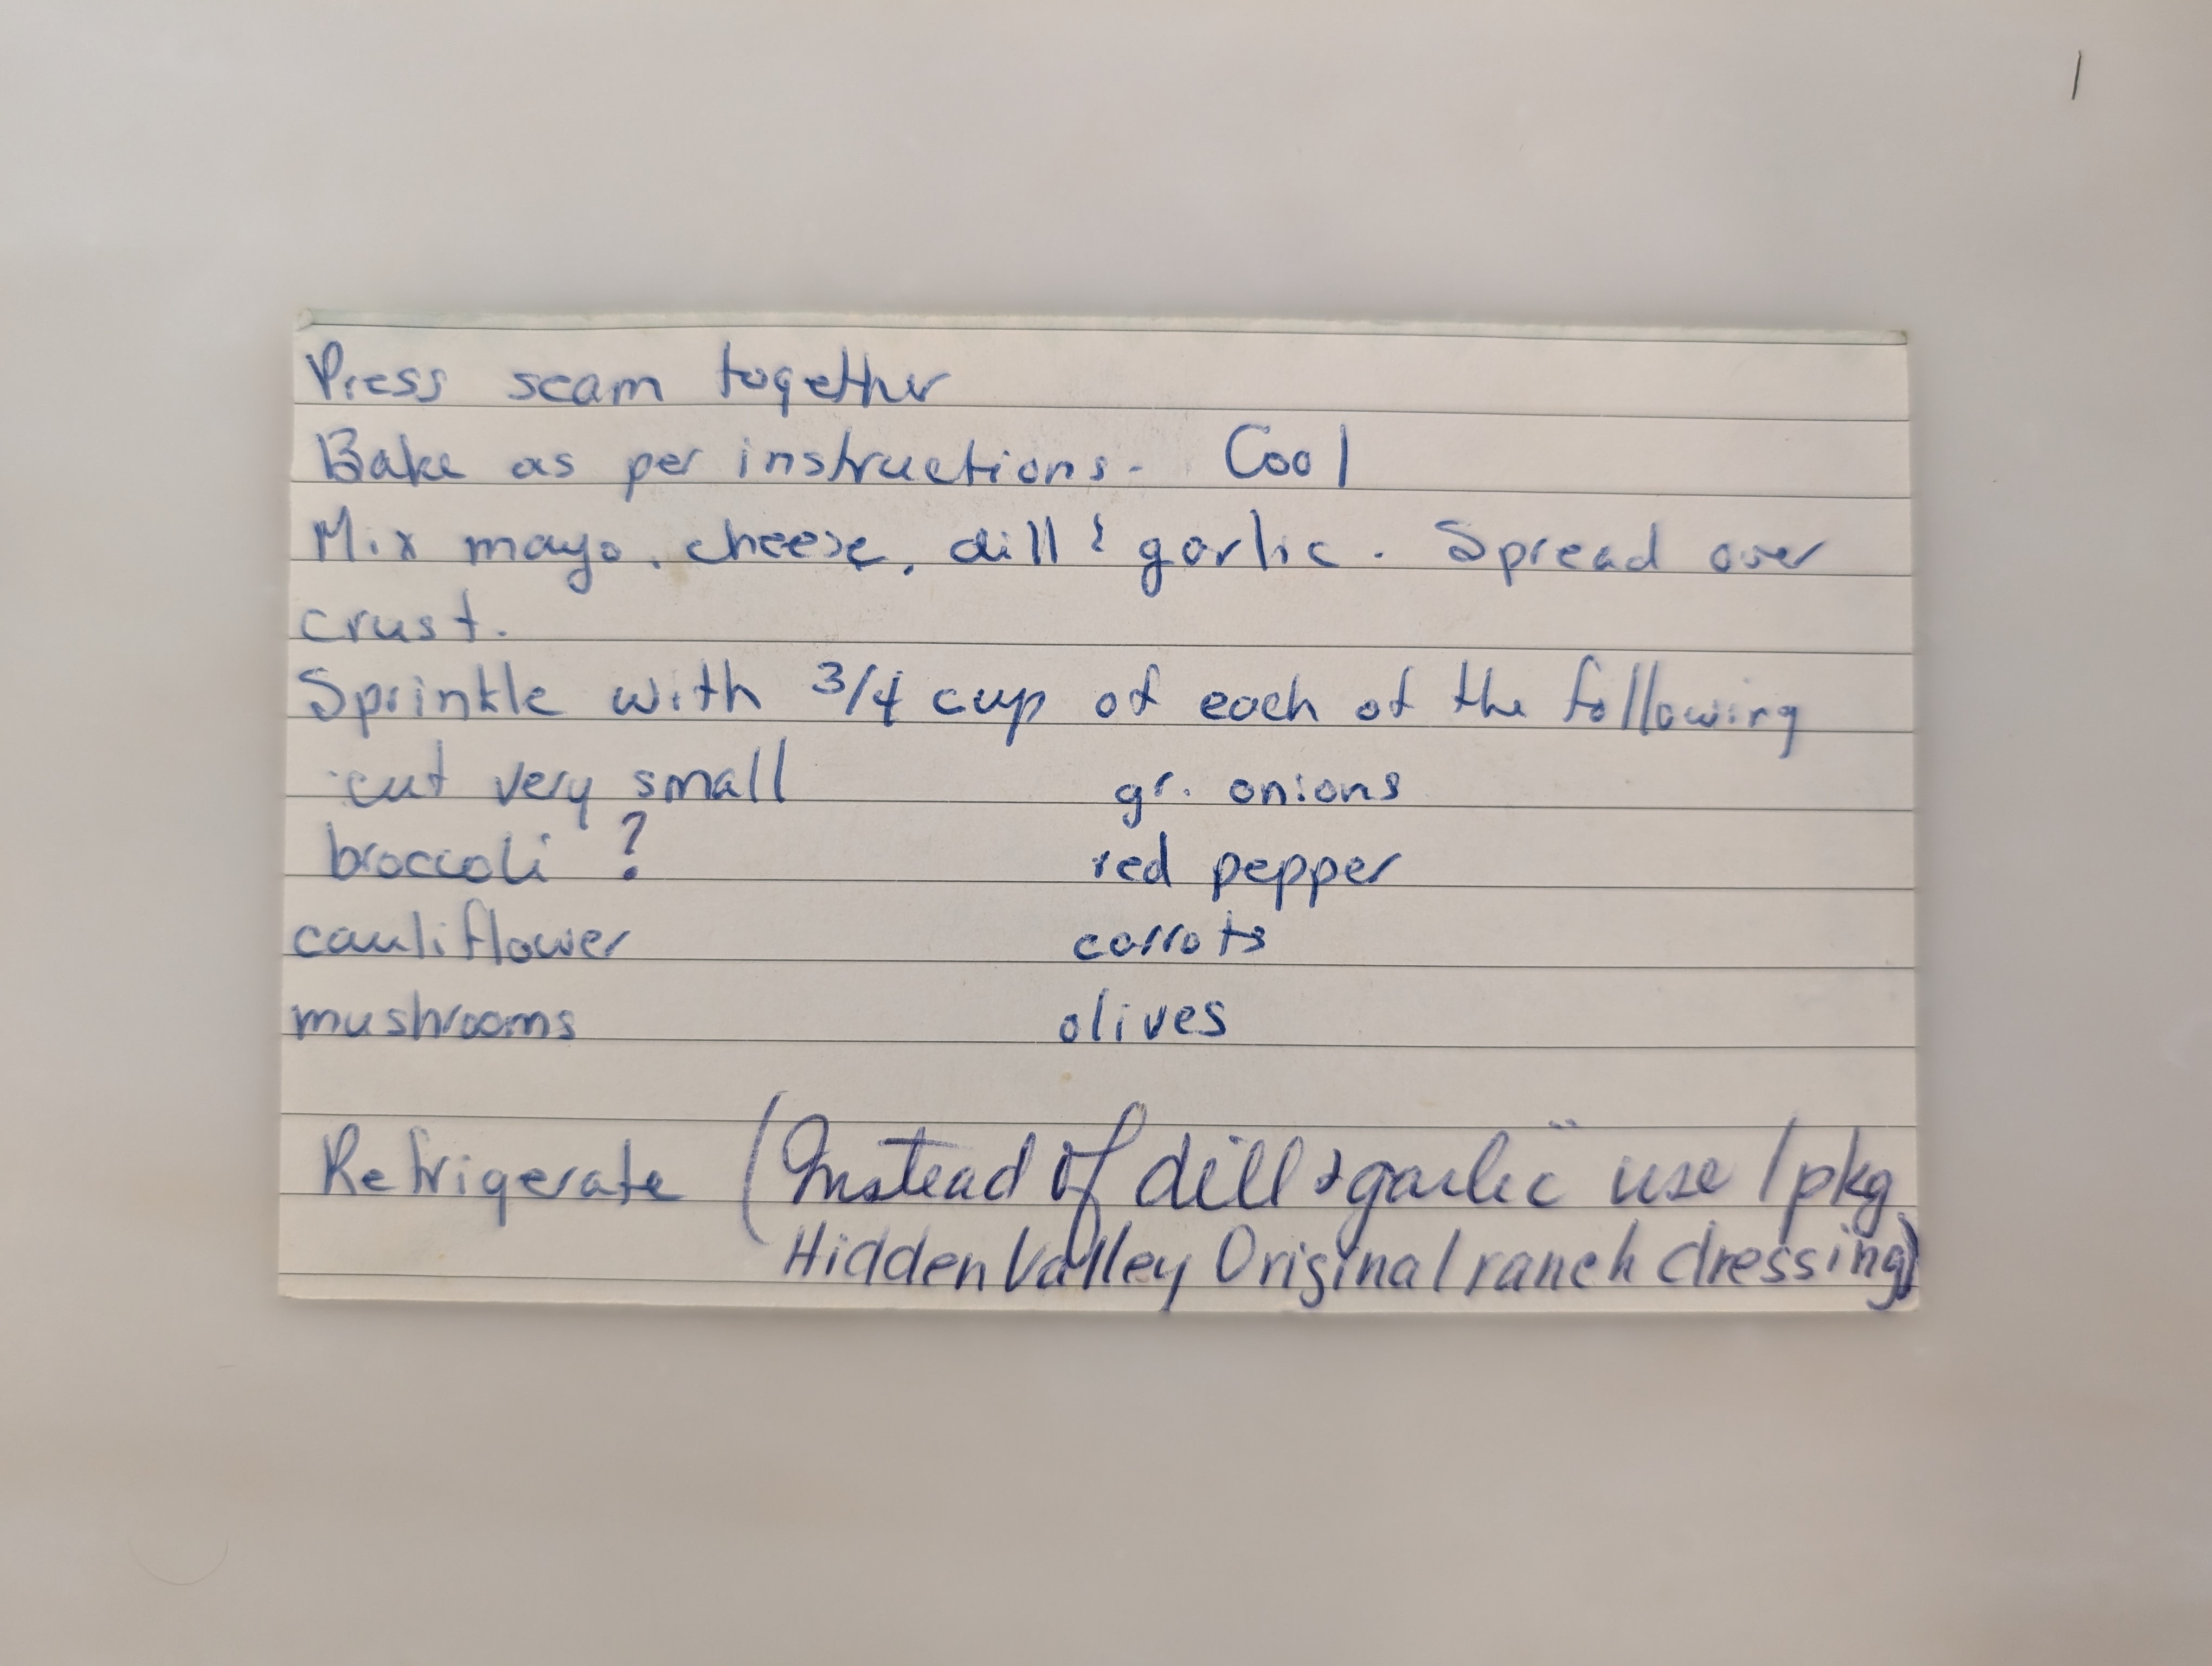 Press seam together
Bake as per instructions. Cool
Mix mayo, cheese, dill & garlic. Spread over
crust.
Sprinkle with 3/4 cup of each of the following
cut very small gr. onions
broccoli ? red pepper
cauliflower carrots
mushrooms olives
Refrigerate (Instead of dill & garlic" use 1 pkg
Hidden Valley Original ranch dressing)